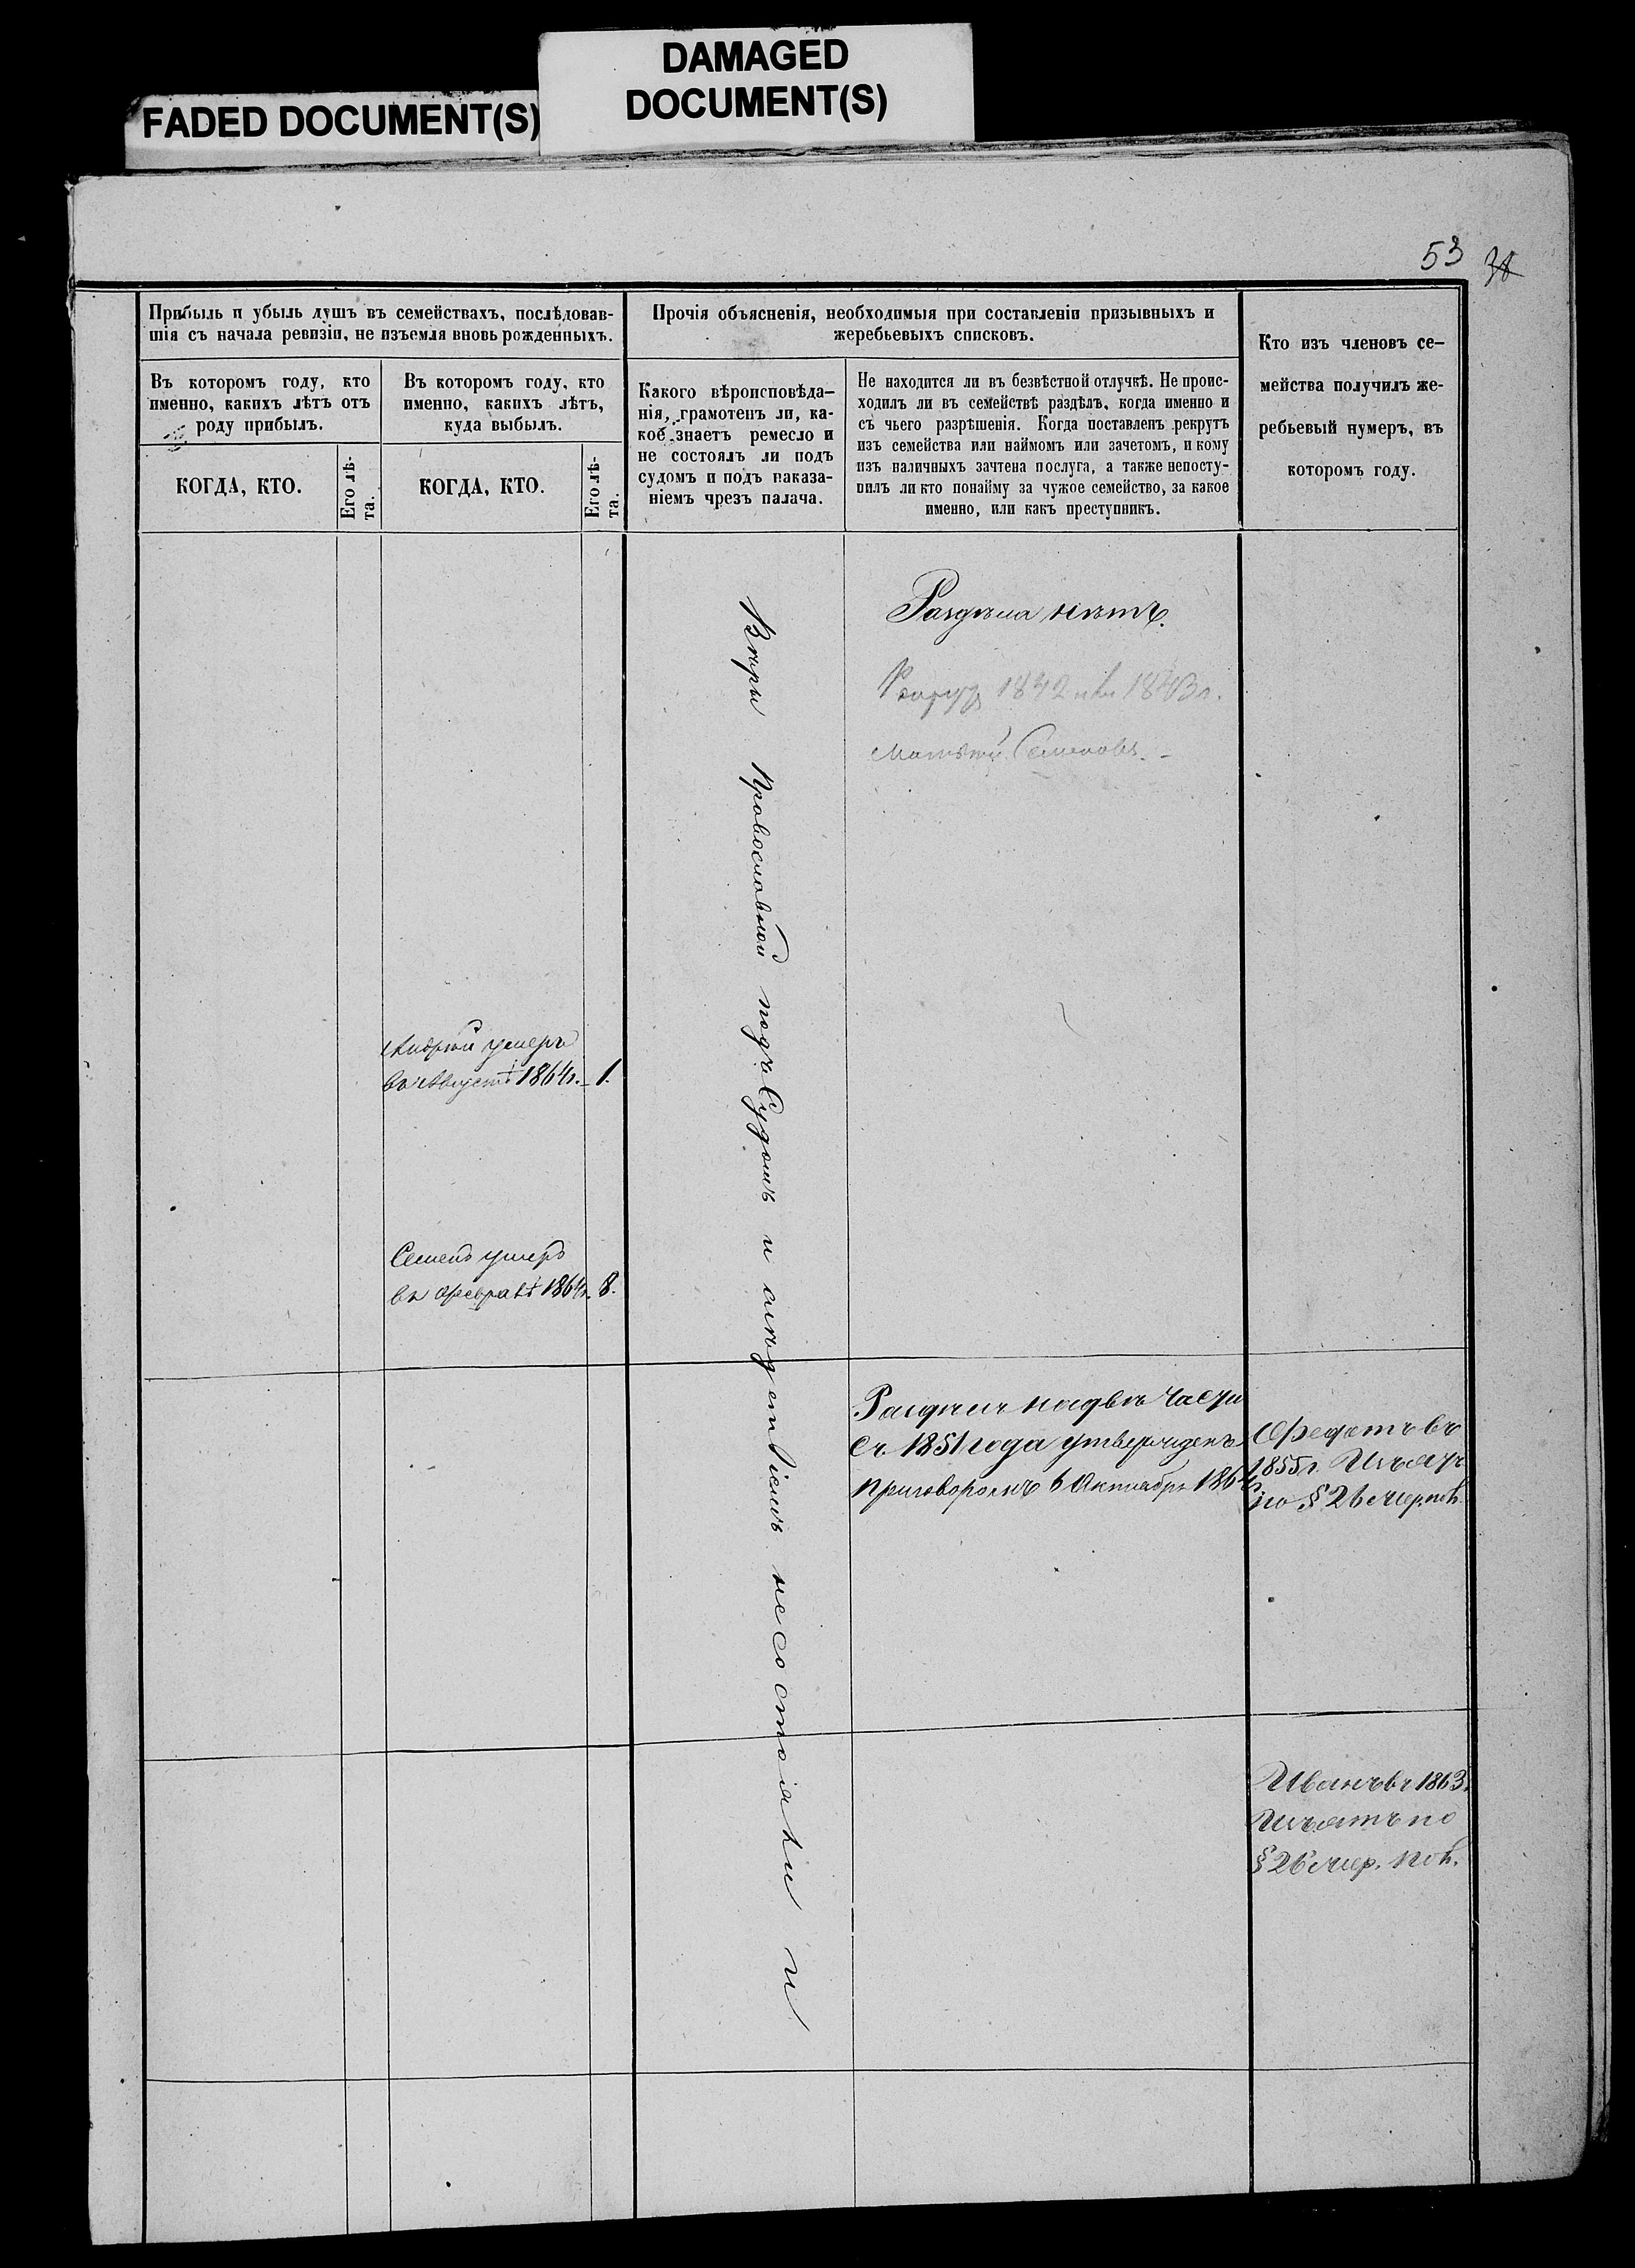 FADED DOCUMENT(S)
DAMAGED
DOCUMENT(S)
53
Прибыль и убыль душъ въ семействахъ, послѣдовав-
шія съ начала ревизіи, не изъемля вновь рожденныхъ.
Въ которомъ году, кто
именно, какихъ лѣтъ отъ
роду прибылъ.
КОГДА, КТО.
Его лѣ-
та.
Въ которомъ году, кто
именно, какихъ лѣтъ,
куда выбылъ.
КОГДА, КТО.
Его лѣ-
та.
Прочія объясненія, необходимыя при составленіи призывныхъ и
жеребьевыхъ списковъ.
Какого вѣроисповѣда-
нія, грамотенъ ли, ка-
кое знаетъ ремесло и
не состоялъ ли подъ
судомъ и подъ наказа-
ніемъ чрезъ палача.
Не находится ли въ безвѣстной отлучкѣ. Не проис-
ходилъ ли въ семействѣ раздѣлъ, когда именно и
съ чьего разрѣшенія. Когда поставленъ рекрутъ
изъ семейства или наймомъ или зачетомъ, и кому
изъ наличныхъ зачтена послуга, а также непосту-
пилъ ли кто понайму за чужое семейство, за какое
именно, или какъ преступникъ.
Кто изъ членовъ се-
мейства получилъ же-
ребьевый нумеръ, въ
которомъ году.
Раздѣла нѣтъ.
1842 или 1843 г.
Семеновъ.
Андрей умеръ
въ Августѣ 1864 г. 1.
Семенъ умеръ
въ Февралѣ 1864 г. 8.
Вѣры Православной подъ Судомъ и слѣдствіемъ несостояли и
Раздѣлъ на двѣ части
съ 1851 года утвержденъ
приговоромъ 6 Октября 186
Федотъ въ
1855 г. Изъятъ
по § 26
Иванъ въ 1863
Изъятъ по
§ 26